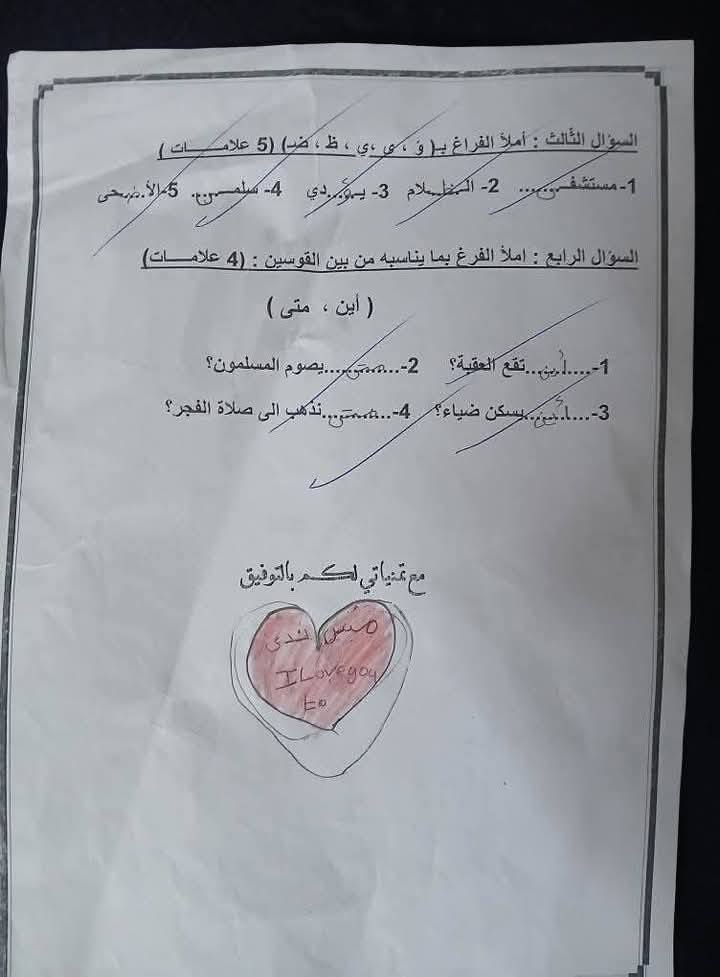 السؤال الثالث : أملأ الفراغ بـ( ؤ ، ى ، ي ، ظ ، ضـ) (5 علامات )
1- مستشفـ...ى... 2- الـ..ظـ..لام 3- يـ..ؤ..دي 4- سلمـ...ى... 5- الأ..ضـ..حى
السؤال الرابع : املأ الفرغ بما يناسبه من بين القوسين : (4 علامات)
( أين ، متى )
1-....أين....تقع العقبة؟ 2-....متى....يصوم المسلمون؟
3-....أين....يسكن ضياء؟ 4-....متى....نذهب الى صلاة الفجر؟
مع تمنياتي لكم بالتوفيق
مس ندى
I Love you
to